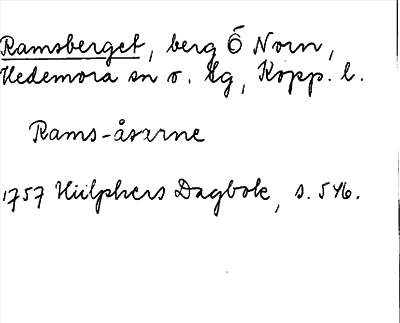 Ramsberget, berg Ö Norn,
Hedemora sn o. lg, Kopp. l.
Rams-åsarne
1757 Hülphers Dagbok, s. 546.